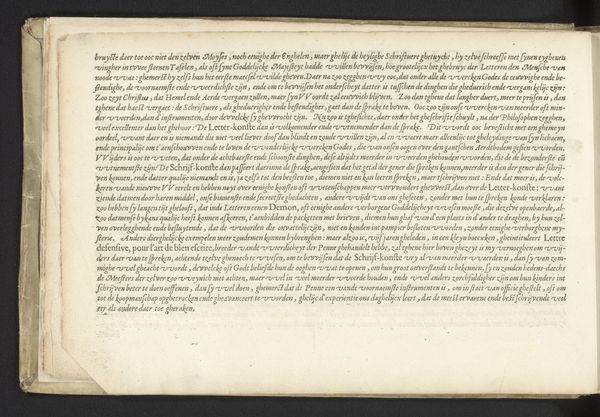 bruyckte daer toe ooc niet den zelven Moyses, noch eenighe der Enghelen, maer ghelijc de heylighe Schriftuere ghetuycht, hy zelve schreefse met synen eyghenen
vingher in twee steenen Tafelen, als oft syne Goddelijcke Majesteyt hadde willen bewijsen, hoe grootelijcx het ghebruyc der Letteren den Mensche van
noode was: ghemerct hy zelfs hun het eerste maecsel wilde gheven. Daer na zoo zegghen wy ooc, dat onder alle de wercken Godes de eeuwighe ende be-
stendighe, de voornaemste ende weerdichste zijn, ende om te bewijsen het onderscheyt datter is tusschen de dinghen die gheduerich ende verganckelijc zijn:
Zoo zeyt Christus, dat Hemel ende Aerde vergaen zullen, maer syn Woordt zal eeuwich blijven. Zoo dan tghene dat langher duert, meer te prijsen is, dan
tghene dat haest vergaet: de Schriftuere, als gheduerigher ende bestendigher, gaet dan de sprake te boven. Ooc zoo zijn onse wercken van meerder oft min-
der weerden, dan d'instrumenten, door de welcke sy ghewrocht zijn. Nu zoo is tghesichte, daer onder het gheschrifte schuylt, na der Philosophen zegghen,
veel excellenter dan het ghehoor: De Letter-konste dan is volkomender ende uutnemender dan de sprake. Dit wordt ooc bevesticht met een ghemeyn
oordeel, want daer en is niemandt die niet veel liever doof dan blindt en zoude willen zijn, al en waert maer alleenlijc tot ghelijdinge van syn lichaem,
ende principalijc om t'aenschouwen ende te leven de wonderlijcke wercken Godes, die van onsen ooghen over den gantschen Aerdtbodem ghesien worden.
Wijders is ooc te weten, dat onder de achtbaerste ende schoonste dinghen, dese altijdts meerder in weerden ghehouden worden, die de bezonderste en
uutnemenste zijn: De Schrijf-konste dan passeert daerinne de sprake, aengesien dat het getal der gener die spreken konnen, meerder is dan der gener die schrij-
ven konnen, ende datter qualijc niemandt en is, ja zelfs tot den beesten toe, dienen niet en kan leeren spreken, maer schrijven niet: Ende dat meer is, de volc-
keren vande nieuwe Werelt en hebben noyt over eenighe konsten oft wetenschappen meer verwondert gheweest, dan over de Letter-konste: want
ziende datmen door haren middel, onse binnenste ende secreetste ghedachten, andere wijdt van ons gheseten, zonder met hun te spreken konde verklaren:
zoo hebben sy langen tijt ghelooft, dat inde Letteren eenen Demon, oft eenighe andere verborgene Goddelicheyt wesen moeste, die dezelve openbaerde, al-
zoo datmense by kans qualijc heeft konnen afkeeren, t'aenbidden de packetten met brieven, diemen hun gaf van d'een plaets in d'ander te draghen, by hun zel-
ven overlegghende ende besluytende, dat de woorden die onvattelijc zijn, niet en konden int pampier besloten worden, zonder eenighe verborghene my-
sterie. Andere dierghelijcke exempelen meer zoudemen konnen bybrenghen: maer alzoo ic, vijf jaren gheleden, in een kleyn boecxken, gheintituleert Lettre
defensive, pour l'art de bien escrire, breeder vande weerdicheyt der Penne ghehandelt hebbe, zal tghene hier boven ghezeyt is my vernoeghen om wij-
ders daer van te spreken, achtende tzelve ghenoech te wesen, om te bewijsen dat de Schrijf-konste vry al van meerder waerden is, dan sy van zom-
mighe wel gheacht wordt, dewelcke oft Godt beliefde hun de ooghen wat te openen, om hun groot onverstandt te bekennen, sy en zouden hedens-daechs
de Meesters der zelver zoo weynich niet achten, maer wel in veel meerder weerde houden, ende wel anders zorchfuldigher zijn om hun kinders int
schrijven beter te doen oeffenen, dan sy wel doen, ghemerct dat de Penne een vande voornaemste instrumenten is, om in staet van officie ghestelt, oft om
tot de koopmanschap opghetrocken ende gheavanceert te worden, ghelijc d'experientie ons daghelijcx leert, dat de meest ervarene ende best schrijvende veel
eer als andere daer toe gheraken.